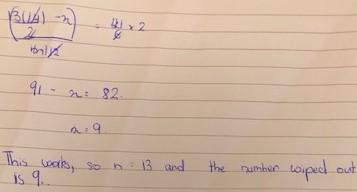 (13(14)/2 - x) = 41/6 × 2
91 - x = 82.
x = 9
This works, so n = 13 and the number wiped out
is 9.